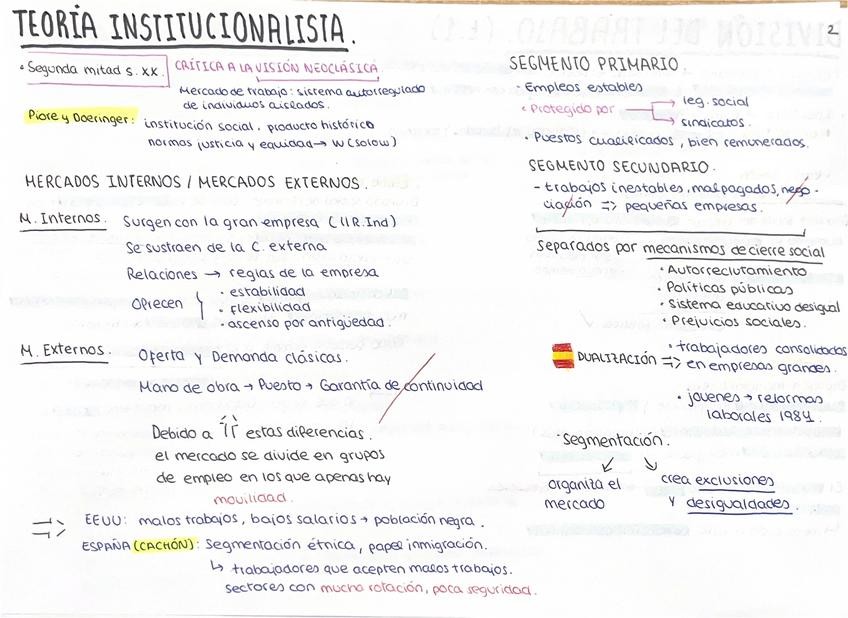 TEORÍA INSTITUCIONALISTA.
2
• Segunda mitad s. XX.
CRÍTICA A LA VISIÓN NEOCLÁSICA
Mercado de trabajo: sistema autorregulado
de individuos aislados.
Piore y Doeringer: institución social. producto histórico
normas justicia y equidad → W (Solow)
MERCADOS INTERNOS / MERCADOS EXTERNOS.
M. Internos. Surgen con la gran empresa (II R.Ind)
Se sustraen de la C. externa
Relaciones → reglas de la empresa
Ofrecen
• estabilidad
• flexibilidad
• ascenso por antigüedad.
M. Externos. Oferta y Demanda clásicas.
Mano de obra → Puesto → Garantía de continuidad
Debido a estas diferencias.
el mercado se divide en grupos
de empleo en los que apenas hay
movilidad.
⇒ EEUU: malos trabajos, bajos salarios → población negra.
ESPAÑA (CACHÓN): Segmentación étnica, papel inmigración.
↳ trabajadores que acepten malos trabajos.
sectores con mucha rotación, poca seguridad.
SEGMENTO PRIMARIO.
• Empleos estables
• Protegido por
→ leg. social
→ sindicatos.
• Puestos cualificados, bien remunerados.
SEGMENTO SECUNDARIO.
- trabajos inestables, mal pagados, nego-
ciación ⇒ pequeñas empresas.
Separados por mecanismos de cierre social
• Autorreclutamiento
• Políticas públicas
• Sistema educativo desigual
• Prejuicios sociales.
DUALIZACIÓN ⇒
• trabajadores consolidados
en empresas grandes.
• jovenes → reformas
laborales 1984.
• Segmentación.
organiza el
mercado
crea exclusiones
y desigualdades.